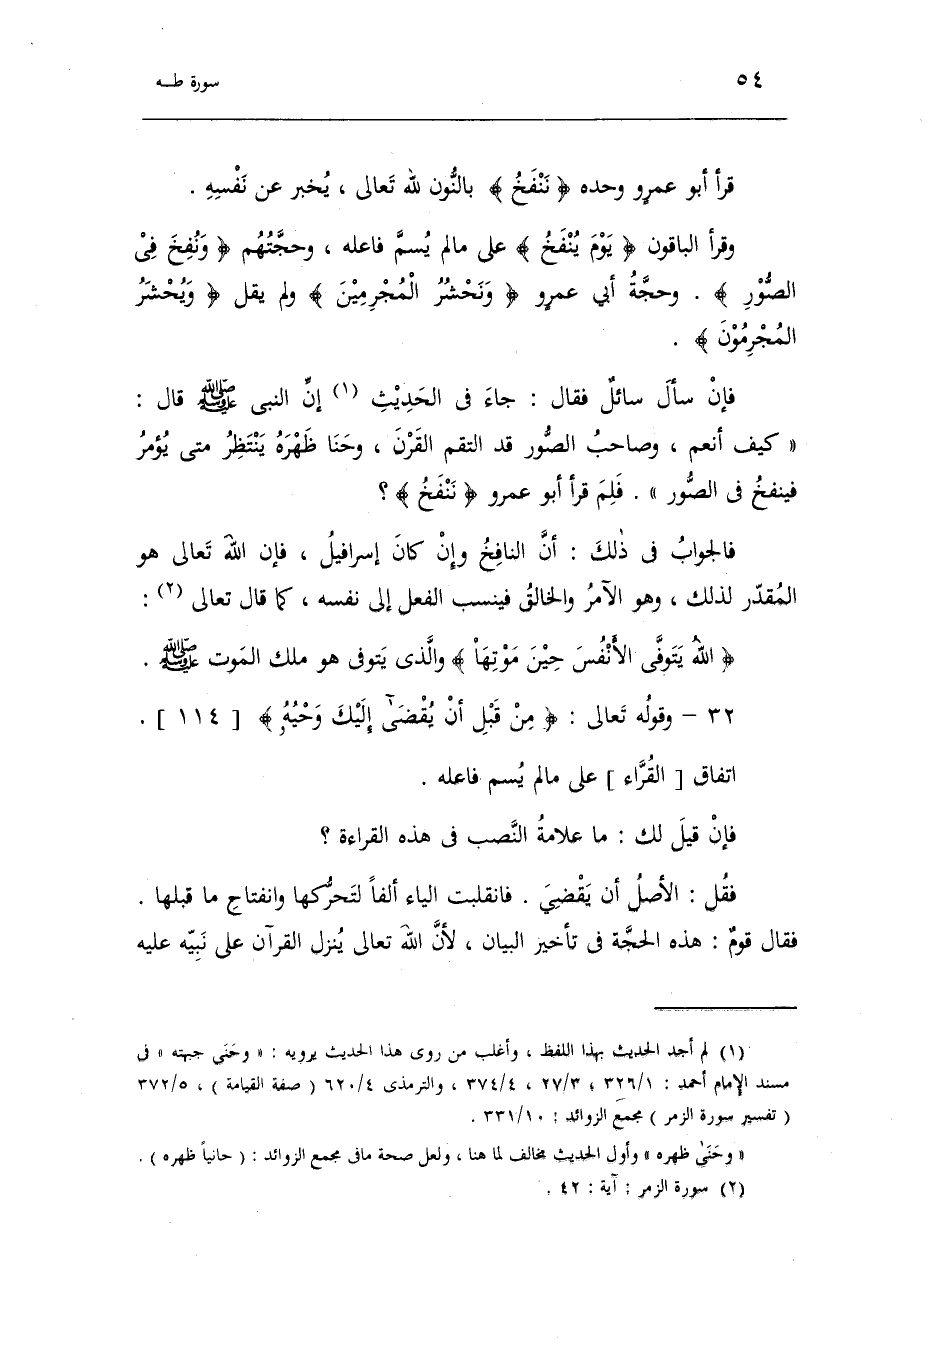 ٥٤
سورة طـــه
قرأ أبو عمرٍو وحده ﴿ نَنْفَخُ ﴾ بالنُّون لله تَعالى ، يُخبر عن نَفْسِهِ .
وقرأ الباقون ﴿ يَوْمَ يُنْفَخُ ﴾ على مالم يُسمَّ فاعله ، وحجَّتُهُم ﴿ وَنُفِخَ فِىْ
الصُّوْرِ ﴾ . وحجَّةُ أبي عمرٍو ﴿ وَنَحْشُرُ الْمُجْرِمِيْنَ ﴾ ولم يقل ﴿ وَيُحْشَرُ
المُجْرِمُوْنَ ﴾ .
فإنْ سألَ سائلٌ فقال : جاءَ فى الحَدِيْثِ (١) إنَّ النبى ﷺ قال :
« كيف أنعم ، وصاحبُ الصُّور قد التقم القَرْنَ ، وحَنَا ظَهْرَهُ يَنْتَظِرُ متى يُؤمرُ
فينفخُ فى الصُّور » . فَلِمَ قرأ أبو عمرو ﴿ نَنْفَخُ ﴾ ؟
فالجوابُ فى ذٰلكَ : أنَّ النافِخُ وإنْ كانَ إسرافيلُ ، فإن اللهَ تَعالى هو
المُقدّر لذلك ، وهو الآمرُ والخالقُ فينسب الفعل إلى نفسه ، كما قال تعالى (٢) :
﴿ اللهُ يَتَوفَّى الأَنْفُسَ حِيْنَ مَوْتِهَا ﴾ والَّذى يَتوفى هو ملك المَوت ﷺ .
٣٢ – وقولُه تَعالى : ﴿ مِنْ قَبْلِ أنْ يُقْضَىٰٓ إِلَيْكَ وَحْيُهُ ﴾ [ ١١٤ ] .
اتفاق [ القُرَّاء ] على مالم يُسم فاعله .
فإنْ قيلَ لك : ما علامةُ النَّصب فى هذه القراءة ؟
فقُل : الأصلُ أن يَقْضِيَ . فانقلبت الياء ألفاً لتَحرُّكها وانفتاحِ ما قبلها .
فقال قومٌ : هذه الحجَّة فى تأخير البيان ، لأنَّ اللهَ تعالى يُنزل القرآن على نَبِيّه عليه
(١) لم أجد الحديث بهذا اللفظ ، وأغلب من روى هذا الحديث يرويه : « وحَنَى جبهته » فى
مسند الإمام أحمد : ٣٢٦/١ ، ٢٧/٣ ، ٣٧٤/٤ ، والترمذى ٦٢٠/٤ ( صفة القيامة ) ، ٣٧٢/٥
( تفسير سورة الزمر ) مجمع الزوائد : ٣٣١/١٠ .
« وحَنَىٰ ظهره » وأول الحديث مخالف لما هنا ، ولعل صحة مافى مجمع الزوائد : ( حانياً ظهره ) .
(٢) سورة الزمر : آية : ٤٢ .